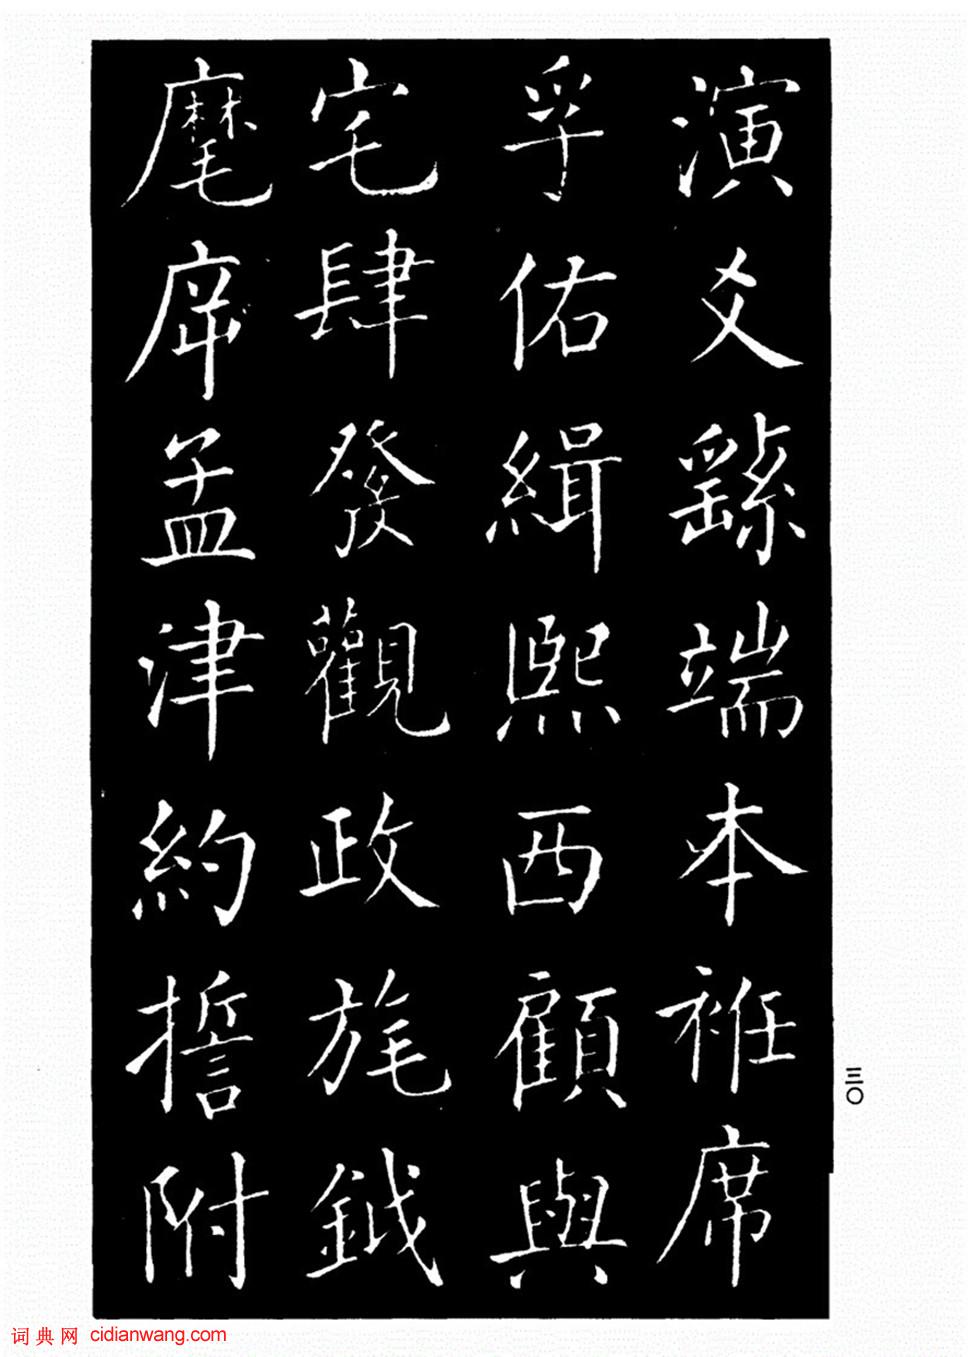 演爻繇端本袵席
孚佑緝熙西顧與
宅肆發觀政旄鉞
麾斥孟津約誓附
三〇
词典网 cidianwang.com